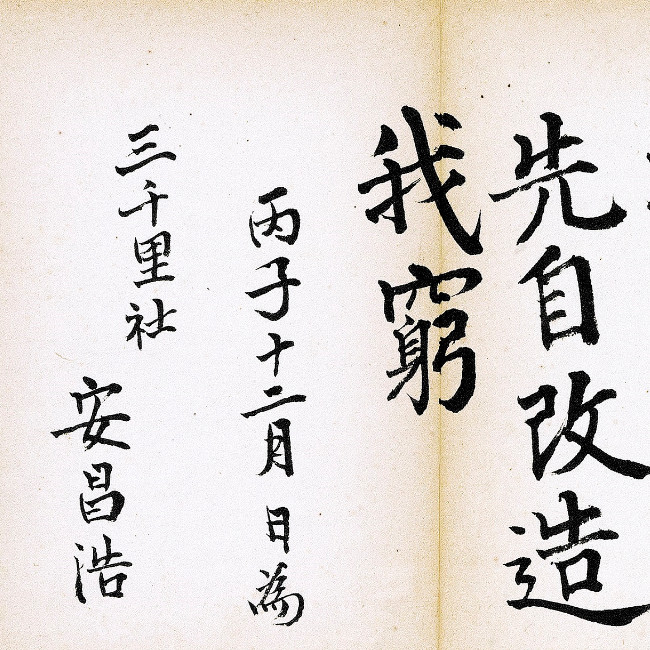 先自改造
我窮
丙子十二月 日為
三千里社
安昌浩